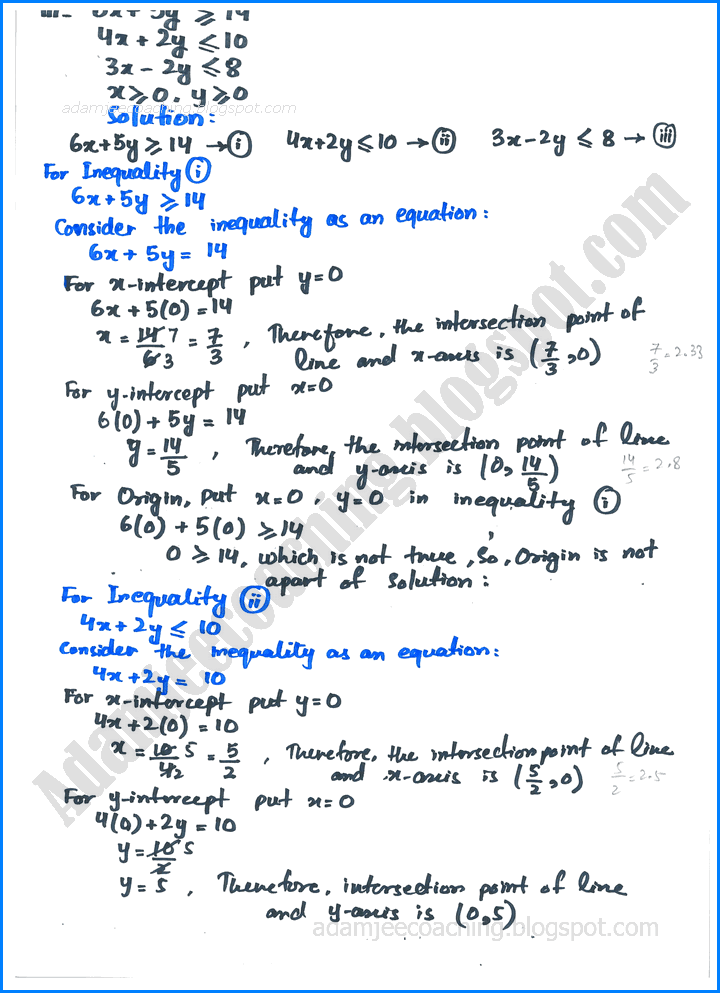 iii- 6x + 5y ≥ 14
4x + 2y ≤ 10
3x - 2y ≤ 8
x ≥ 0, y ≥ 0
adamjeecoaching.blogspot.com
Solution:
6x+5y ≥ 14 → (i) 4x+2y ≤ 10 → (ii) 3x-2y ≤ 8 → (iii)
For Inequality (i)
6x+5y ≥ 14
Consider the inequality as an equation:
6x + 5y = 14
For x-intercept put y=0
6x + 5(0) = 14
x = 14/6 7/3 = 7/3, Therefore, the intersection point of
line and x-axis is (7/3, 0) 7/3 = 2.33
For y-intercept put x=0
6(0) + 5y = 14
y = 14/5, Therefore, the intersection point of line
and y-axis is (0, 14/5) 14/5 = 2.8
For Origin, put x=0, y=0 in inequality (i)
6(0) + 5(0) ≥ 14
0 ≥ 14, which is not true, So, Origin is not
apart of solution:
For Inequality (ii)
4x + 2y ≤ 10
Consider the inequality as an equation:
4x + 2y = 10
For x-intercept put y=0
4x + 2(0) = 10
x = 10/4 5/2 = 5/2, Therefore, the intersection point of line
and x-axis is (5/2, 0) 5/2 = 2.5
For y-intercept put x=0
4(0) + 2y = 10
y = 10/2 5
y = 5, Therefore, intersection point of line
and y-axis is (0,5)
adamjeecoaching.blogspot.com
Adamjeecoaching.blogspot.com